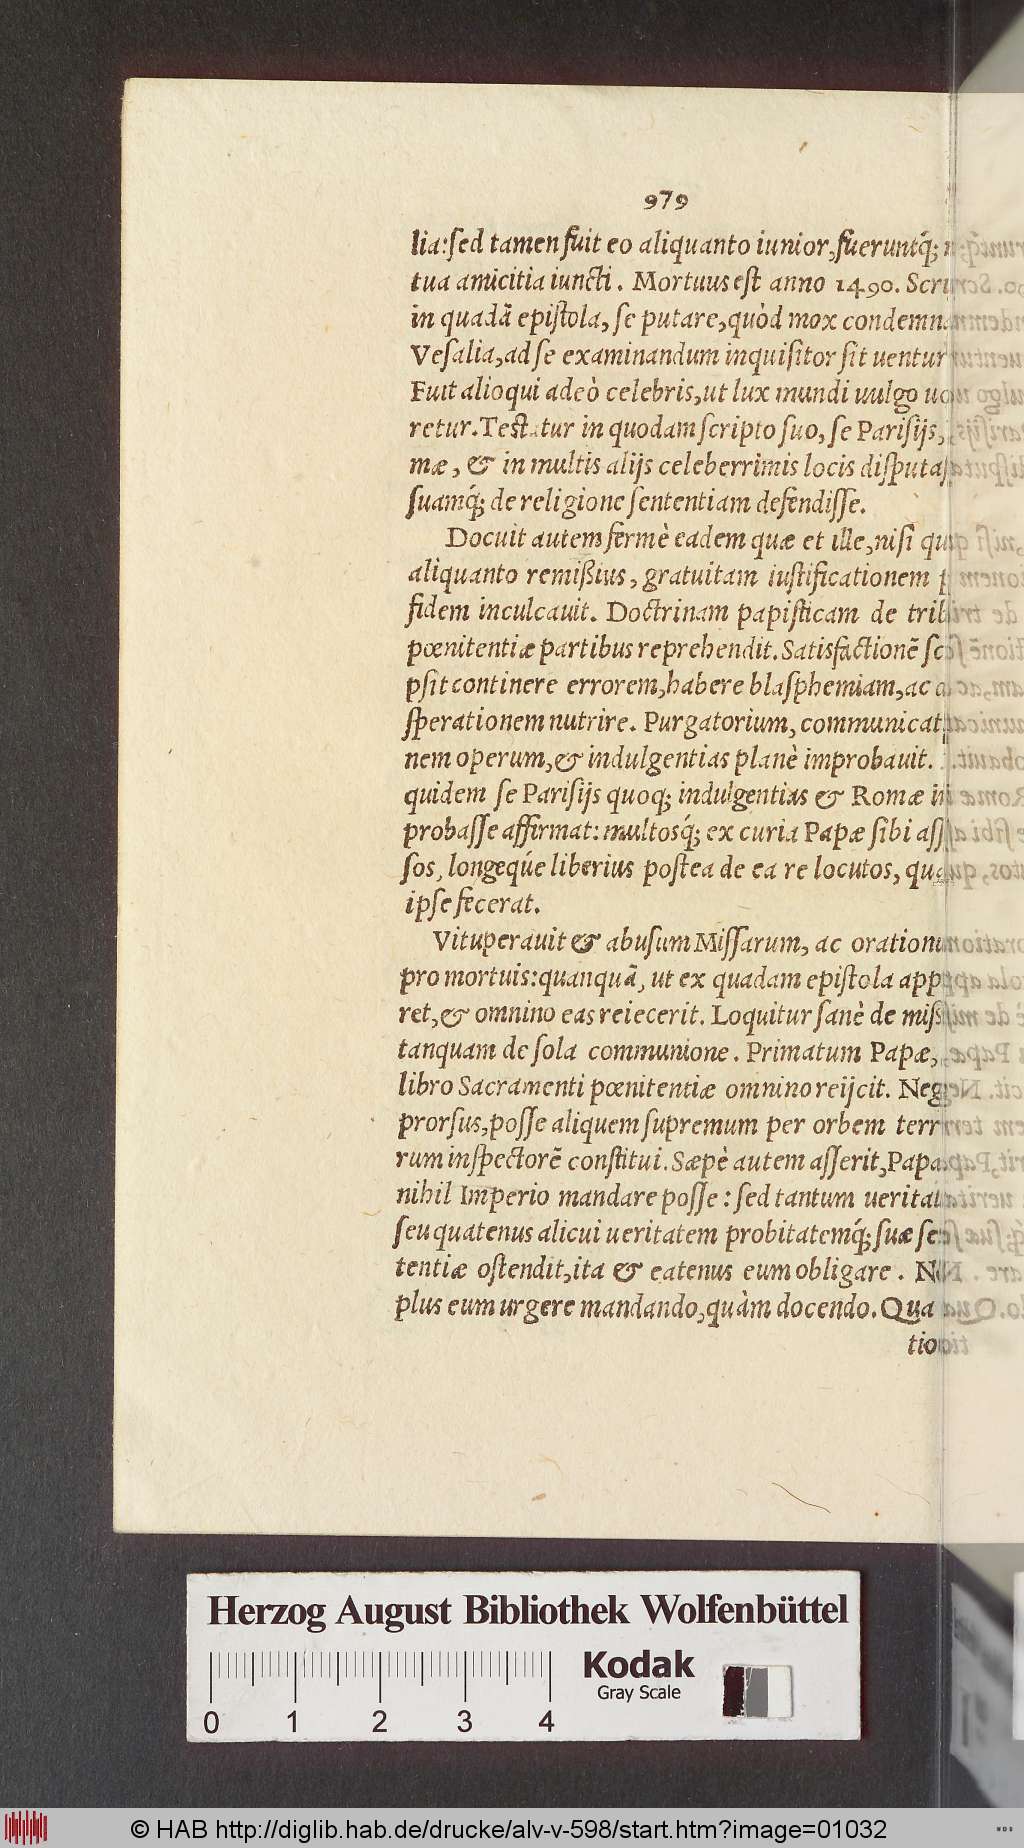 979
lia:sed tamen fuit eo aliquanto iunior, fueruntq́;
tua amicitia iuncti. Mortuus est anno 1490.
in quadā epistola, se putare, quòd mox
Vesalia, ad se examinandum inquisitor sit
Fuit alioqui adeò celebris, ut lux mundi uulgo
retur. Testatur in quodam scripto suo, se Parisijs,
mæ, & in multis alijs celeberrimis locis
suamq́; de religione sententiam defendisse.
Docuit autem fermè eadem quæ et ille, nisi
aliquanto remißius, gratuitam iustificationem
fidem inculcauit. Doctrinam papisticam de
pœnitentiæ partibus reprehendit. Satisfactionē
psit continere errorem, habere blasphemiam, ac
sperationem nutrire. Purgatorium,
nem operum, & indulgentias planè improbauit.
quidem se Parisijs quoq; indulgentias & Romæ
probasse affirmat: multosq́; ex curia Papæ sibi
sos, longeq́ue liberius postea de ea re locutos,
ipse fecerat.
Vituperauit & abusum Missarum, ac
pro mortuis: quanquā, ut ex quadam epistola
ret, & omnino eas reiecerit. Loquitur sanè de
tanquam de sola communione. Primatum Papæ,
libro Sacramenti pœnitentiæ omnino reijcit.
prorsus, posse aliquem supremum per orbem
rum inspectorē constitui. Sæpè autem asserit,
nihil Imperio mandare posse: sed tantum
seu quatenus alicui ueritatem probitatemq́; suæ
tentiæ ostendit, ita & eatenus eum obligare.
plus eum urgere mandando, quàm docendo. Qua
tio
Herzog August Bibliothek Wolfenbüttel
0 1 2 3 4
Kodak
Gray Scale
© HAB http://diglib.hab.de/drucke/alv-v-598/start.htm?image=01032